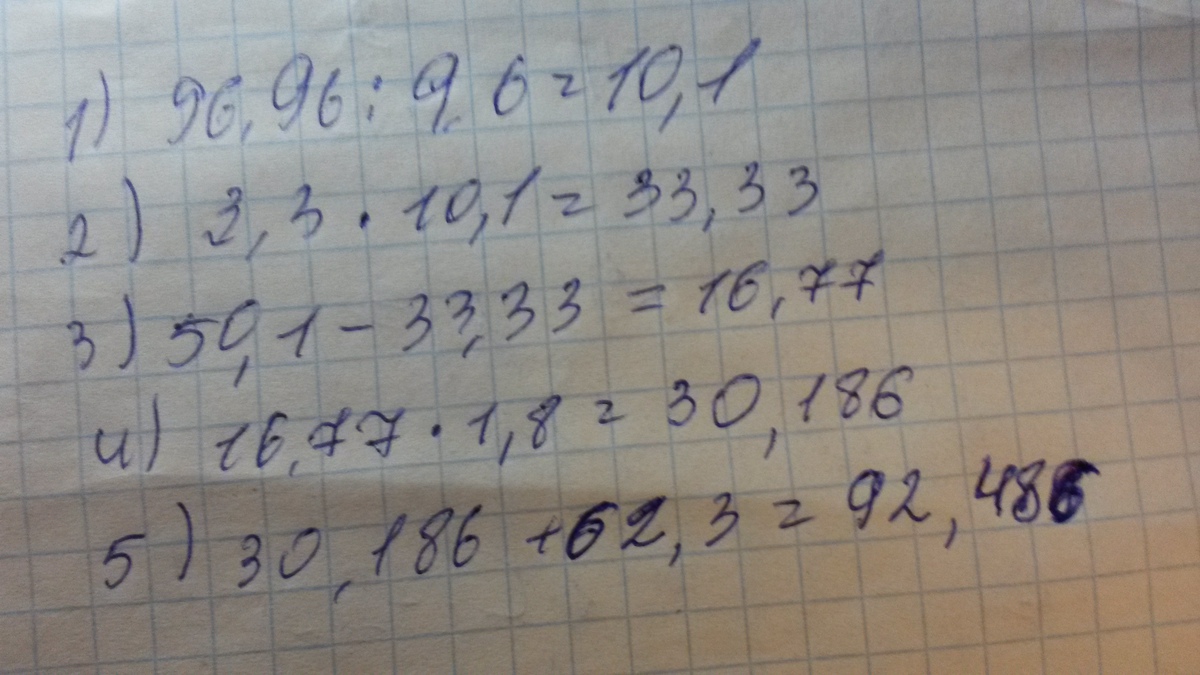 1) 96,96 : 9,6 = 10,1
2) 3,3 · 10,1 = 33,33
3) 50,1 - 33,33 = 16,77
4) 16,77 · 1,8 = 30,186
5) 30,186 + 62,3 = 92,486